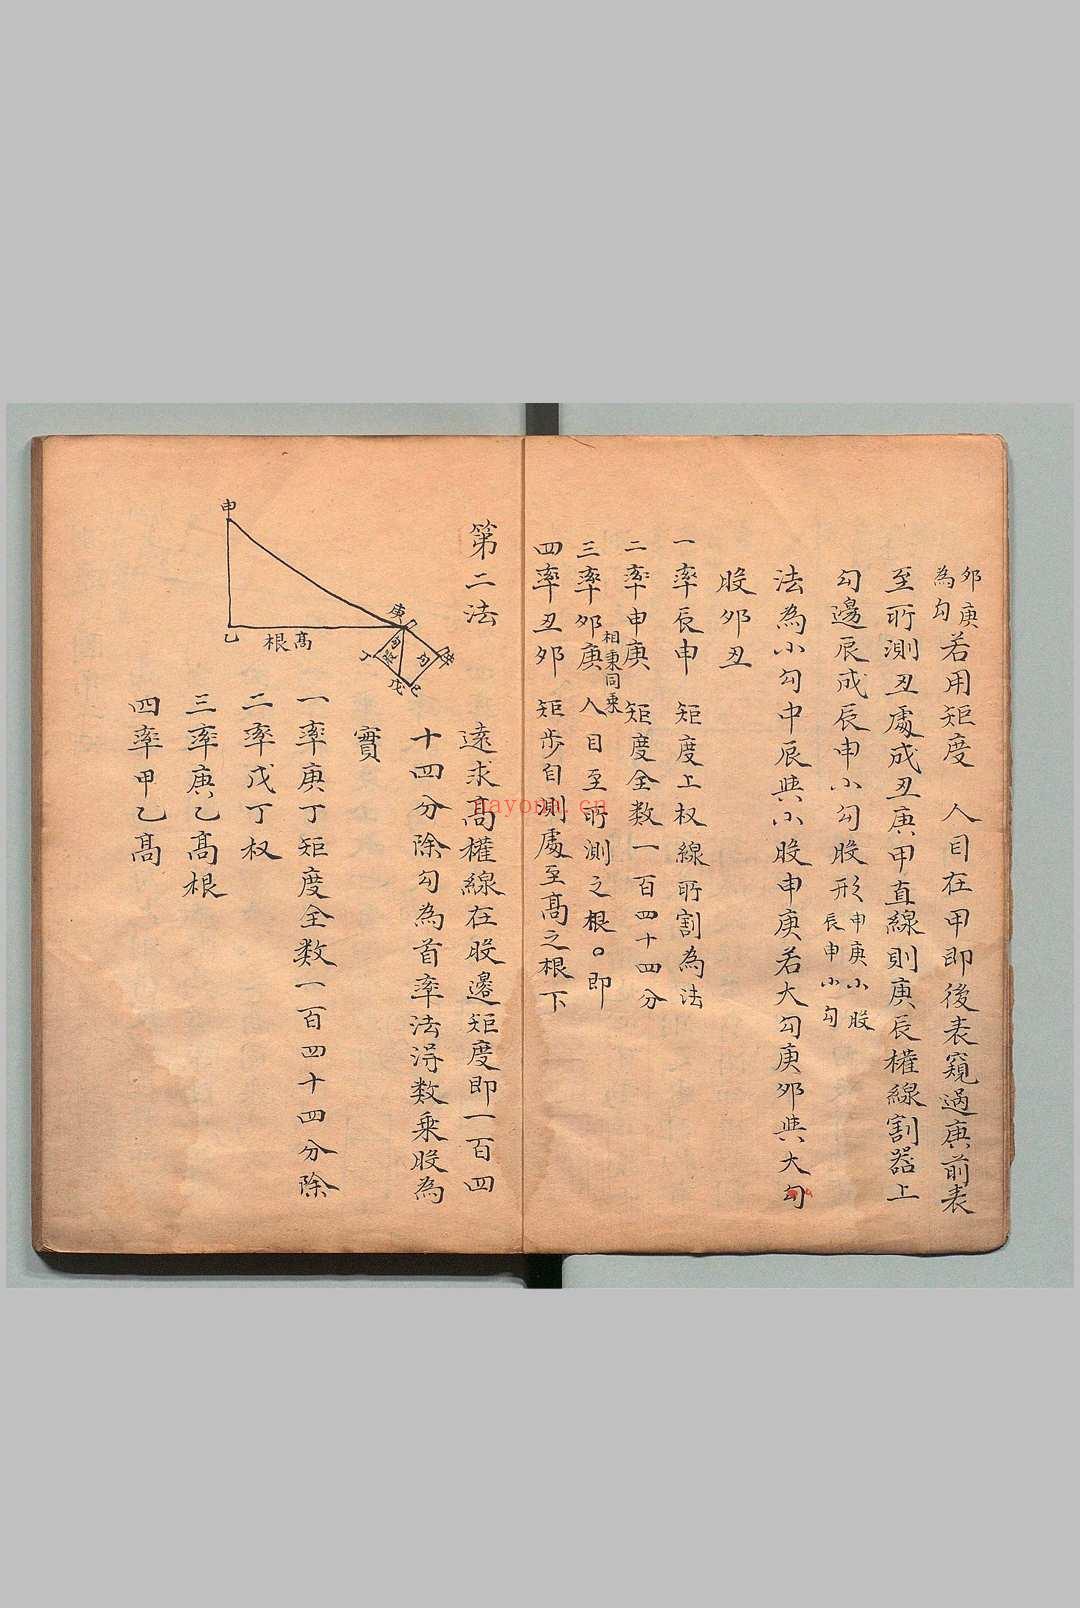 夘庚
為勾
若用矩度 人目在甲即後表窺過庚前表
至所測丑處成丑庚甲直線則庚辰權線割器上
勾邊辰成辰申小勾股形
申庚小股
辰申小勾
法為小勾申辰與小股申庚若大勾庚夘與大勾
股夘丑
一率辰申 矩度上权線所割為法
二率申庚 矩度全数一百四十四分
相乗同乗
三率夘庚 人目至所測之根。即
四率丑夘 矩步自測處至髙之根下
第二法
甲
乙
根髙
庚
勾
丁
戊
己
遠求髙權線在股邊矩度即一百四
十四分除勾為首率法得数乗股為
實
一率庚丁矩度全数一百四十四分除
二率戊丁权
三率庚乙髙根
四率甲乙髙
nayona.cn